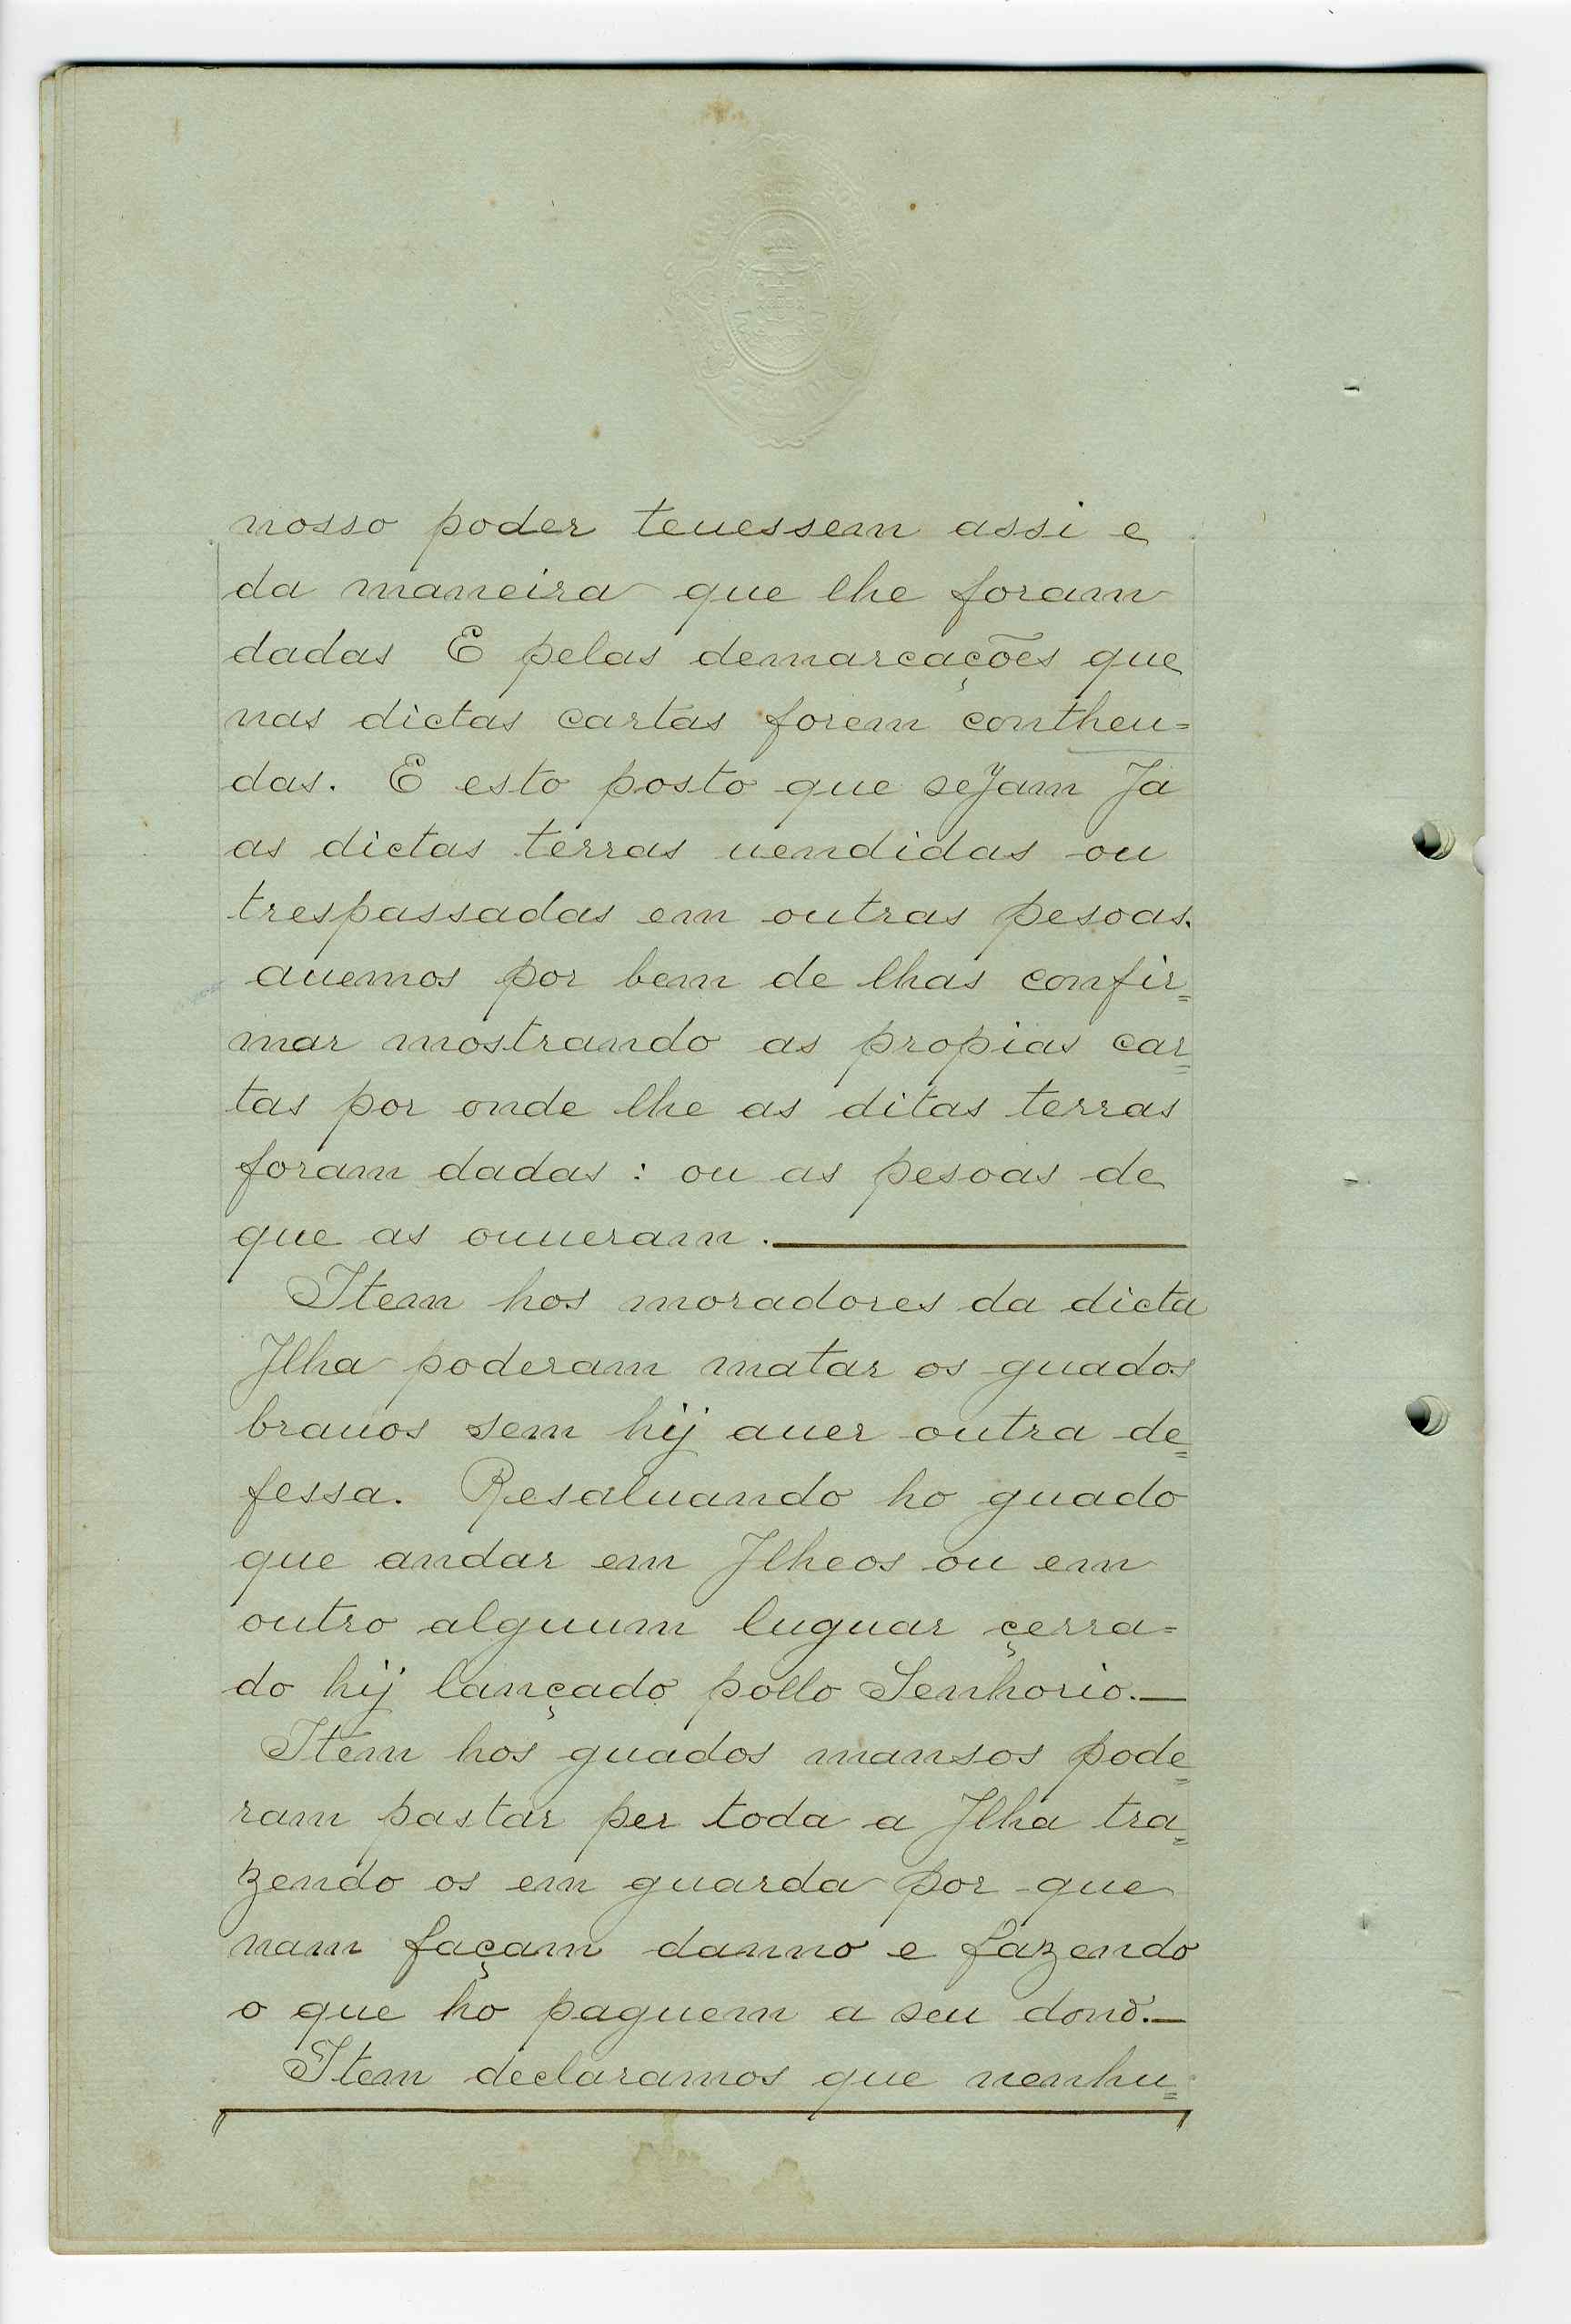 nosso poder teuessem assi e
da maneira que lhe foram
dadas E pelas demarcações que
nas dictas cartas forem contheu=
das. E esto posto que seJam Ja
as dictas terras uendidas ou
trespassadas em outras pesoas.
auemos por bem de lhas confir=
mar mostrando as propias car=
tas por onde lhe as ditas terras
foram dadas: ou as pesoas de
que as ouueram.
Item hos moradores da dicta
Jlha poderam matar os guados
brauos sem hij auer outra de=
fessa. Resaluando ho guado
que andar em Jlheos ou em
outro alguum luguar çerra=
do hij lançado pollo Senhorio.—
Item hos guados mansos pode=
ram pastar per toda a Jlha tra=
zendo os em guarda por que
nam façam danno e fazendo
o que ho paguem a seu dono.—
Item declaramos que nenhu=